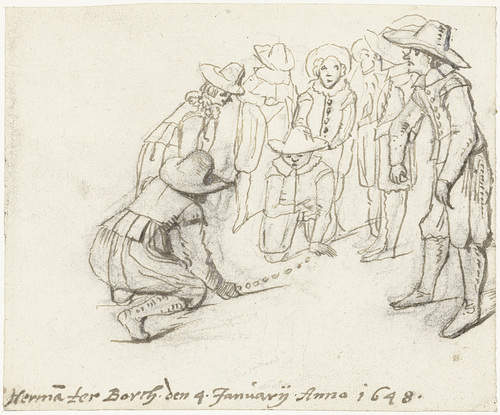 Hermā ter Borch. den 4. Januarij. Anno 1648.